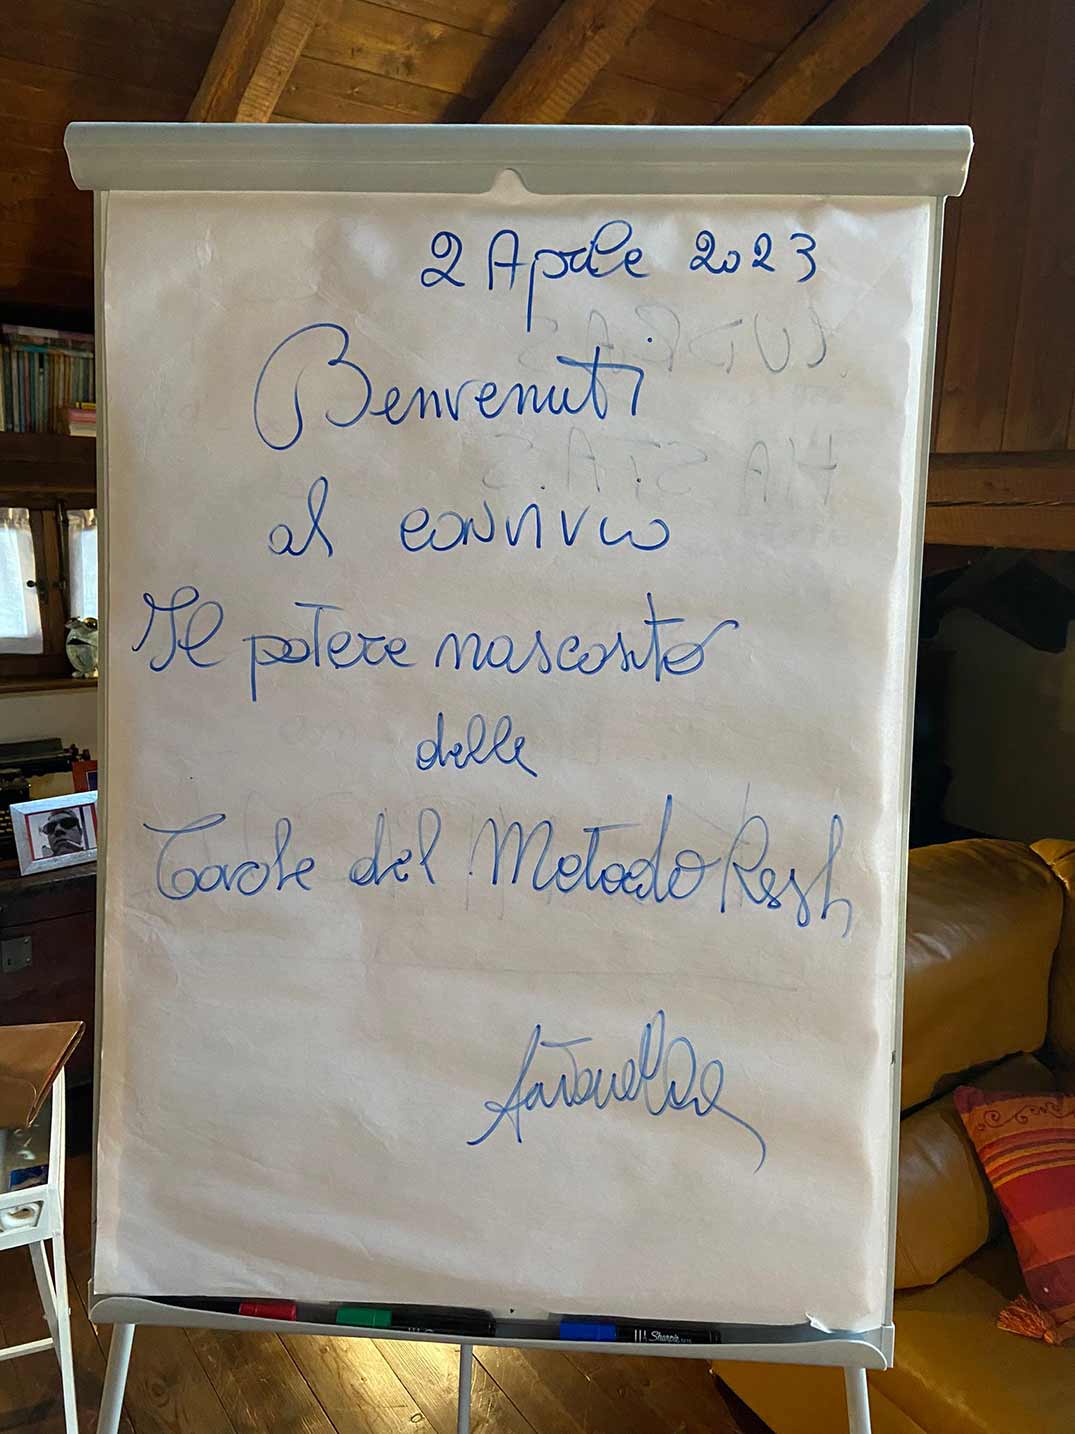 2 Aprile 2023
Benvenuti
al convivio
Il potere nascosto
delle
Tavole del Metodo Resh
Sharpie